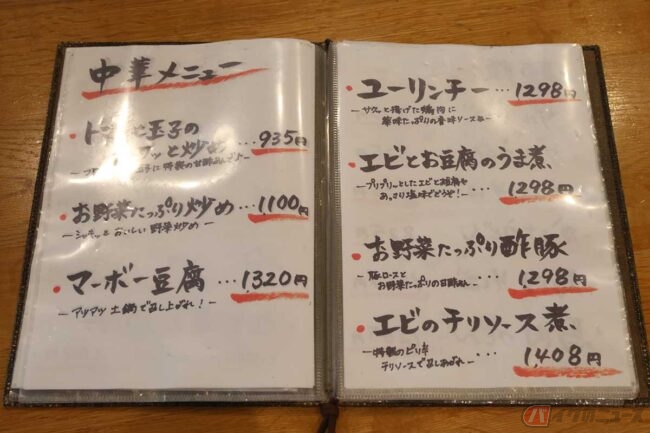 中華メニュー
・ト と玉子の
ッと炒め…935円
・お野菜たっぷり炒め…1100円
ーシャキッとおいしい野菜炒めー
・マーボー豆腐…1,320円
ーアツアツ土鍋で召し上がれ！ー
・ユーリンチー…1298円
ーサクッと揚げた鶏肉に
薬味たっぷりの香味ソースをー
・エビとお豆腐のうま煮、
ープリプリッとしたエビと豆腐を
あっさり塩味でどうぞ！ー
1298円
・お野菜たっぷり酢豚
ー豚ロースと
お野菜たっぷりの甘酢あんー
…1,298円
・エビのチリソース煮、
ー特製のピリ辛
チリソースで召しあがれー
…1,408円
バイクのニュース